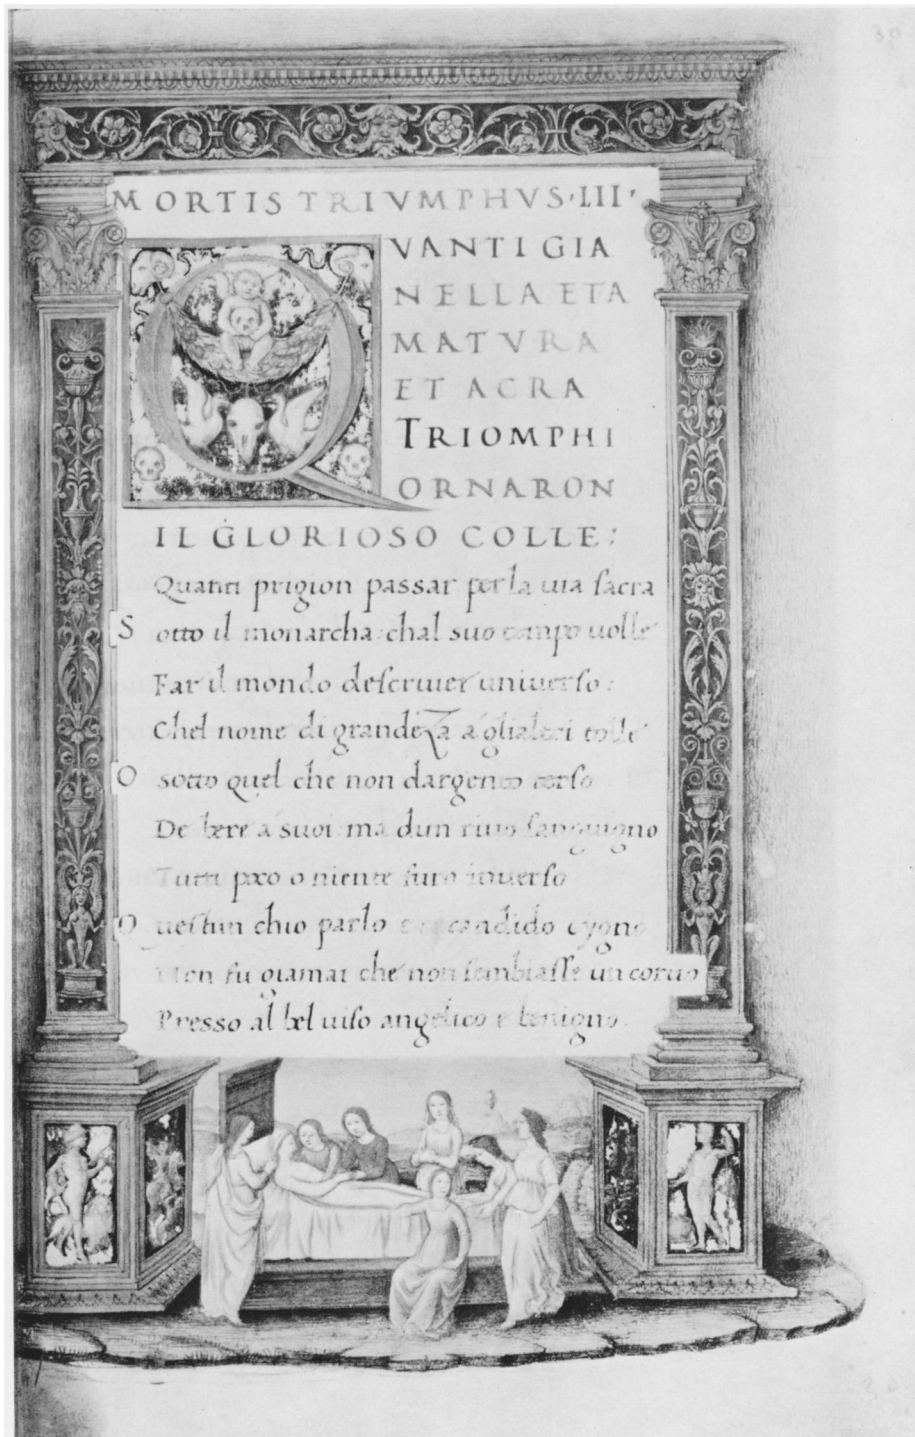 MORTIS TRIVMPHVS·III·
QVANTI GIA
NELLA ETA
MATVRA
ET ACRA
TRIOMPHI
ORNARON
IL GLORIOSO COLLE:
Quanti prigion passar per la uia sacra
Sotto il monarcha chal suo tempo uolle
Far il mondo descriuer uniuerso:
Chel nome di grandeza a glialtri tolle
O sotto quel che non dargento terso
De bere a suoi ma dun riuo sanguigno
Tutti poco o niente furo inuerso
Questun chio parlo e un candido cygno
Non fu giamai che non sembiasse un coruo
Presso al bel uiso angelico e benigno.
30